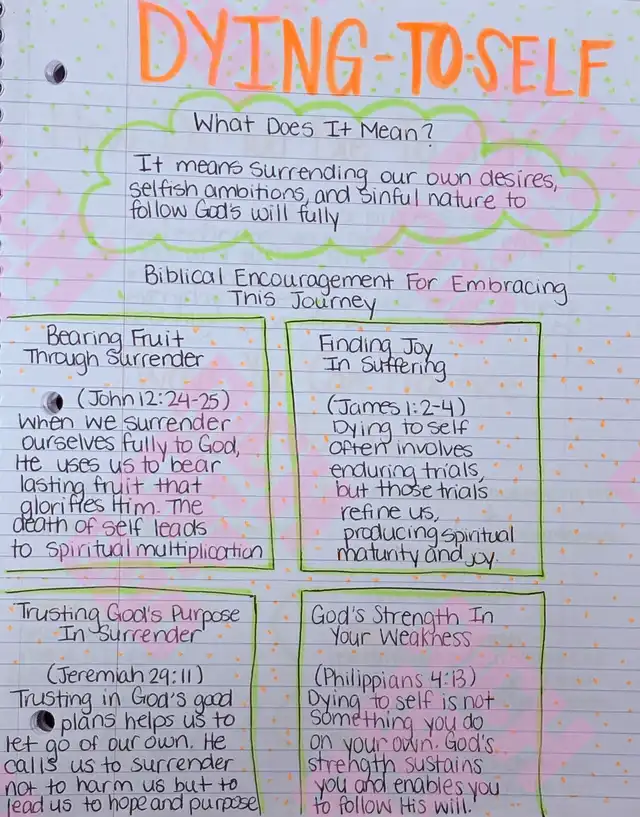 DYING-TO-SELF
What Does It Mean?
It means surrendering our own desires,
selfish ambitions, and sinful nature to
follow God's will fully
Biblical Encouragement For Embracing
This Journey
Bearing Fruit
Through Surrender
(John 12:24-25)
When we surrender
ourselves fully to God,
He uses us to bear
lasting fruit that
glorifies Him. The
death of self leads
to spiritual multiplication
Finding Joy
In Suffering
(James 1:2-4)
Dying to self
often involves
enduring trials,
but those trials
refine us,
producing spiritual
maturity and joy.
Trusting God's Purpose
In Surrender
(Jeremiah 29:11)
Trusting in God's good
plans helps us to
let go of our own. He
calls us to surrender
not to harm us but to
lead us to hope and purpose
God's Strength In
Your Weakness
(Philippians 4:13)
Dying to self is not
something you do
on your own. God's
strength sustains
you and enables you
to follow His will.